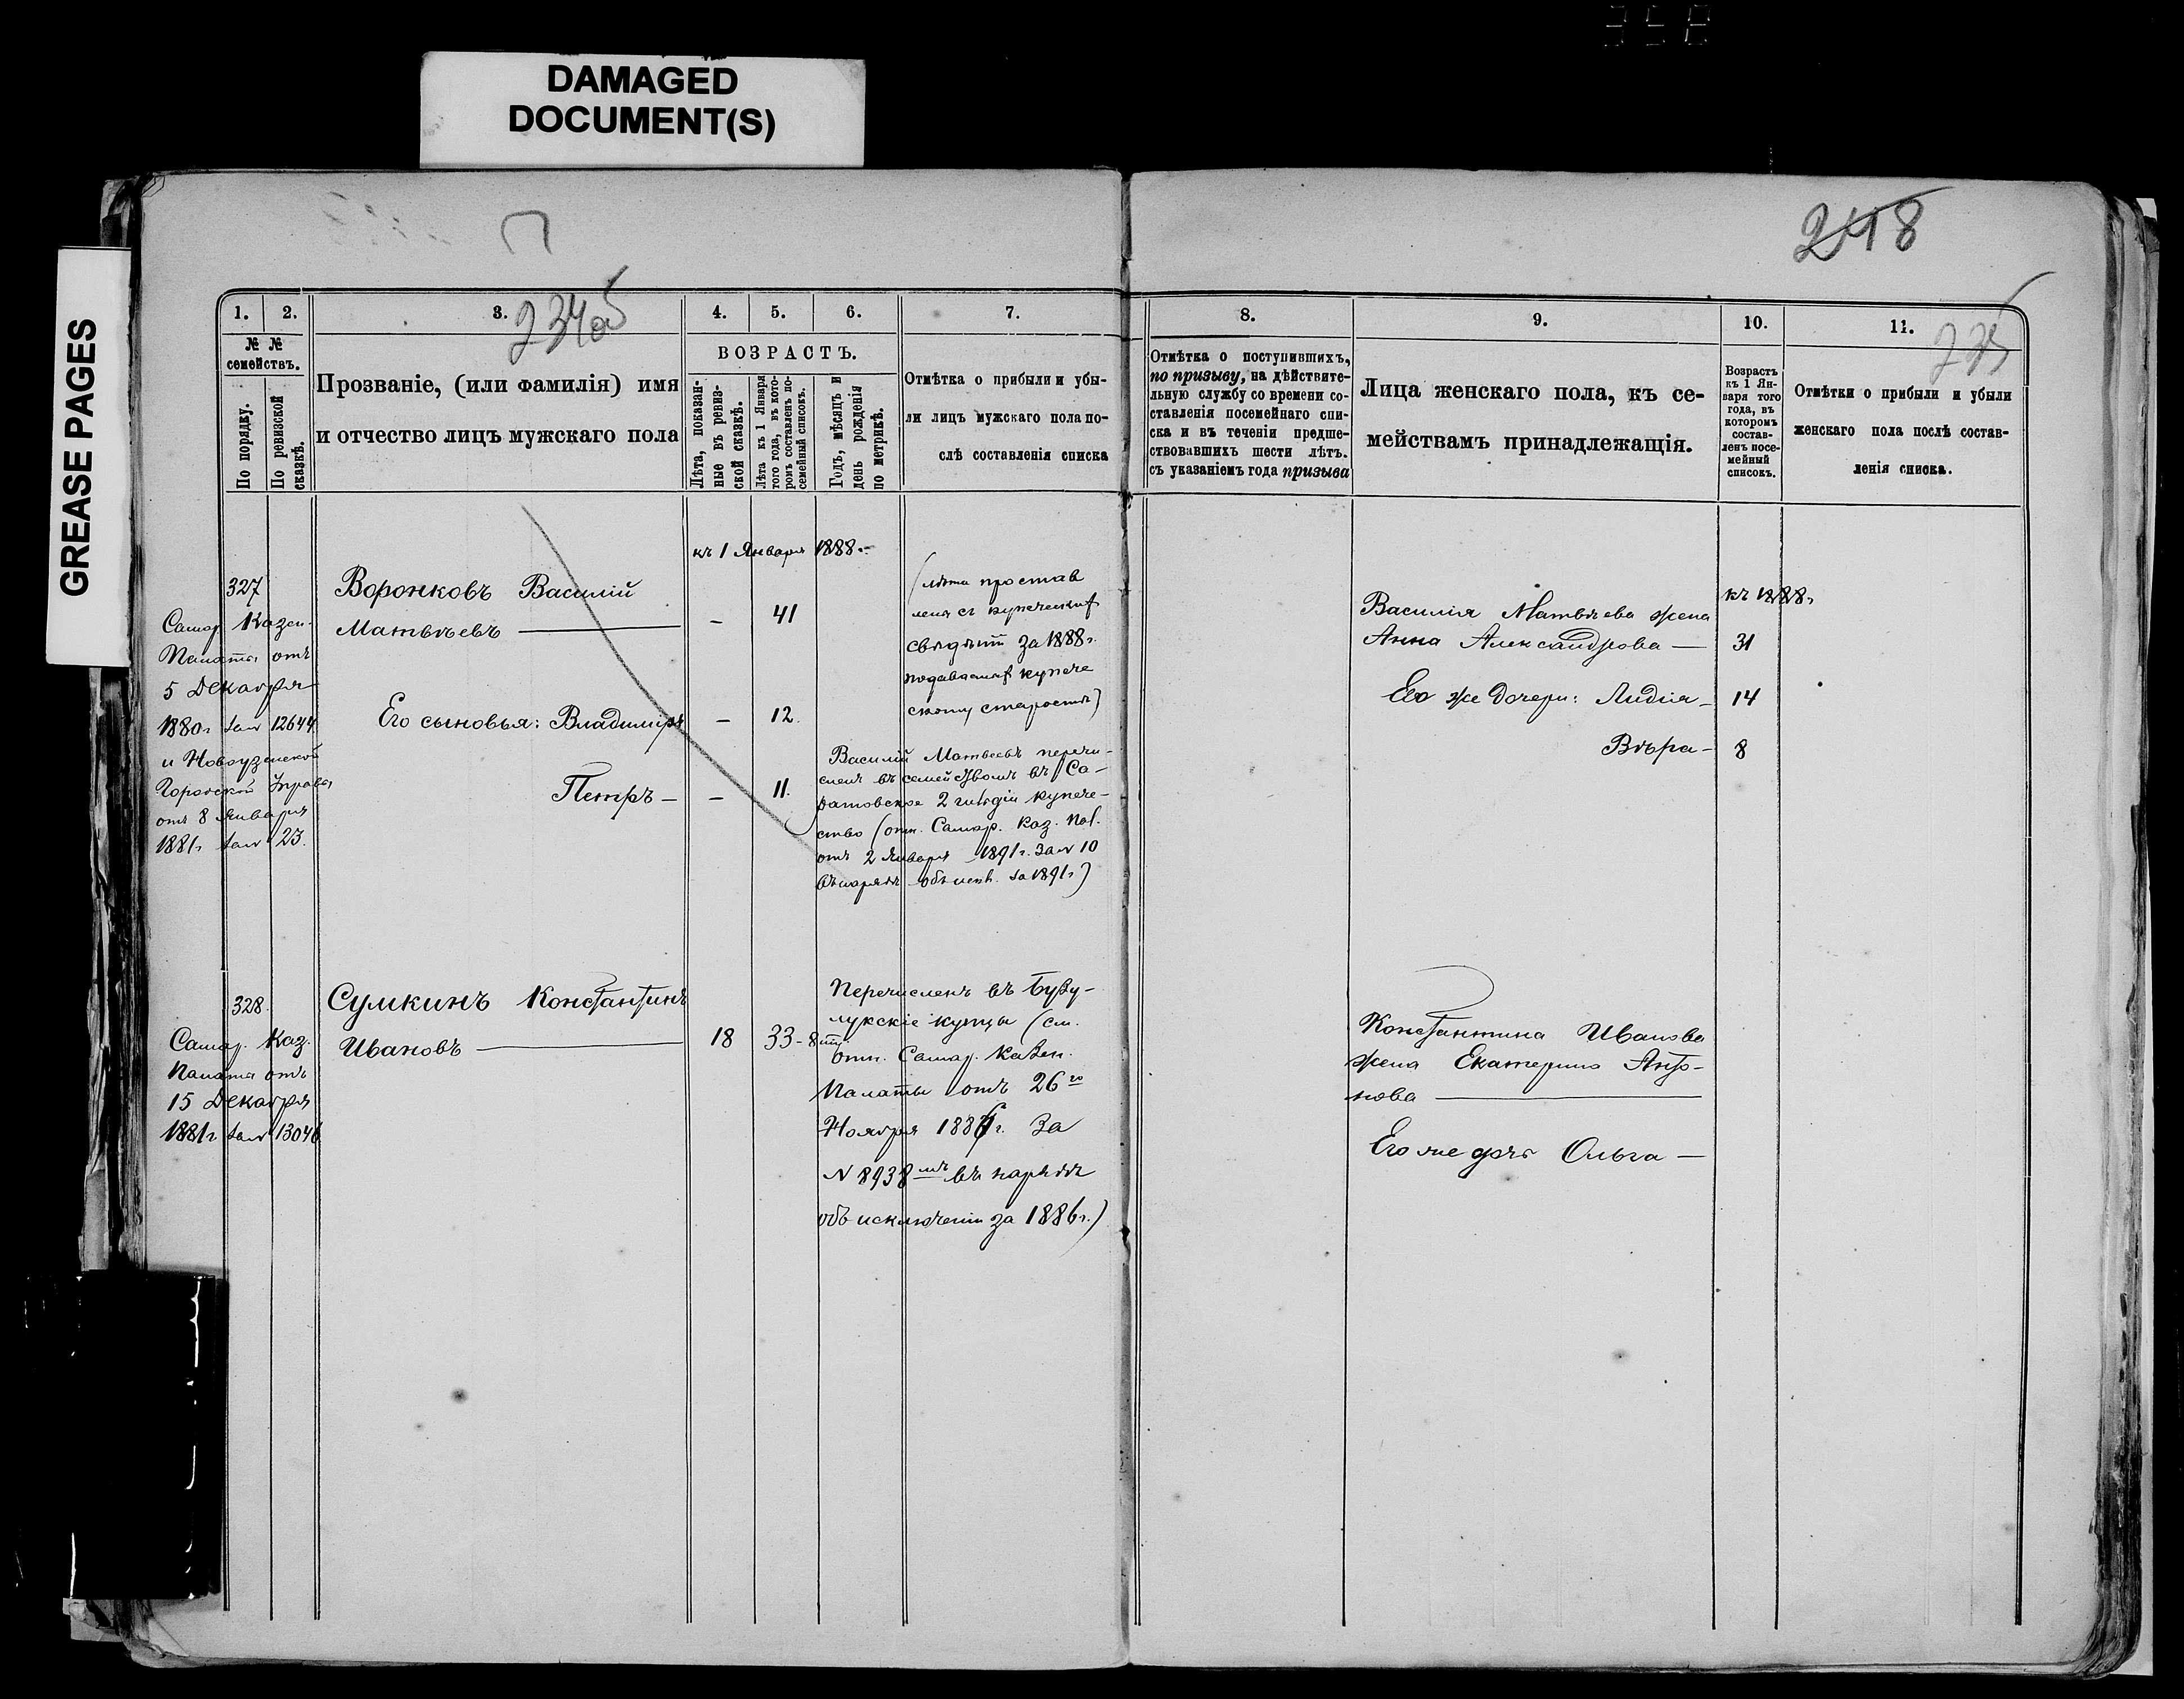 DAMAGED
DOCUMENT(S)
GREASE PAGES
248
1.
2.
3.
4.
5.
6.
7.
8.
9.
10.
11.
№ №
семействъ.
По порядку.
По ревизской
сказкѣ.
Прозваніе, (или фамилія) имя
и отчество лицъ мужскаго пола
ВОЗРАСТЪ.
Лѣта, показан-
ные въ ревиз-
ской сказкѣ.
Лѣта къ 1 Января
того года, въ кото-
ромъ составленъ по-
семейный списокъ.
Годъ, мѣсяцъ и
день рожденія
по метрикѣ.
Отмѣтка о прибыли и убы-
ли лицъ мужскаго пола по-
слѣ составленія списка
Отмѣтка о поступившихъ,
по призыву, на дѣйствите-
льную службу со времени со-
ставленія посемейнаго спи-
ска и въ теченіи предше-
ствовавшихъ шести лѣтъ.
съ указаніемъ года призыва
Лица женскаго пола, къ се-
мействамъ принадлежащія.
Возрастъ
къ 1 Ян-
варя того
года, въ
которомъ
состав-
ленъ посе-
мейный
списокъ.
Отмѣтки о прибыли и убыли
женскаго пола послѣ состав-
ленія списка.
къ 1 Января 1888.-
327
Самар. Казен-
Палаты отъ
5 Декабря
1880г за № 12644
и Новоузенской
Городской Управы
отъ 8 Января
1881г за № 23.
Воронковъ Василій
Матвѣевъ —
— 41
Его сыновья: Владиміръ — 12.
Петръ — — 11.
(лѣта простав
лены съ купеческ
свидѣт за 1888г.
подаваемаг купече
скому старостѣ)
Василій Матвеевъ перечи-
сленъ въ семействомъ въ Са-
ратовское 2 гильдіи купече-
ство (отн. Самар. Каз. Пал.
отъ 2 Января 1891г. за № 10
въ нарядѣ объ искл. за 1891г)
къ 1888г
Василія Матвѣева жена
Анна Александрова — 31
Его же дочери: Лидія — 14
Вѣра — 8
328.
Самар. Каз.
Палата отъ
15 Декабря
1881г за № 13046
Сумкинъ Константинъ
Ивановъ —
18 33-8
Перечисленъ въ Бузу-
лукскіе купцы (см.
отн. Самар. Казен.
Палаты отъ 26го
Ноября 1886г. за
№ 8938мъ въ нарядѣ
объ исключеніи за 1886г.)
Константина Иванова
жена Екатерина Анто-
нова —
Его же дочь Ольга —